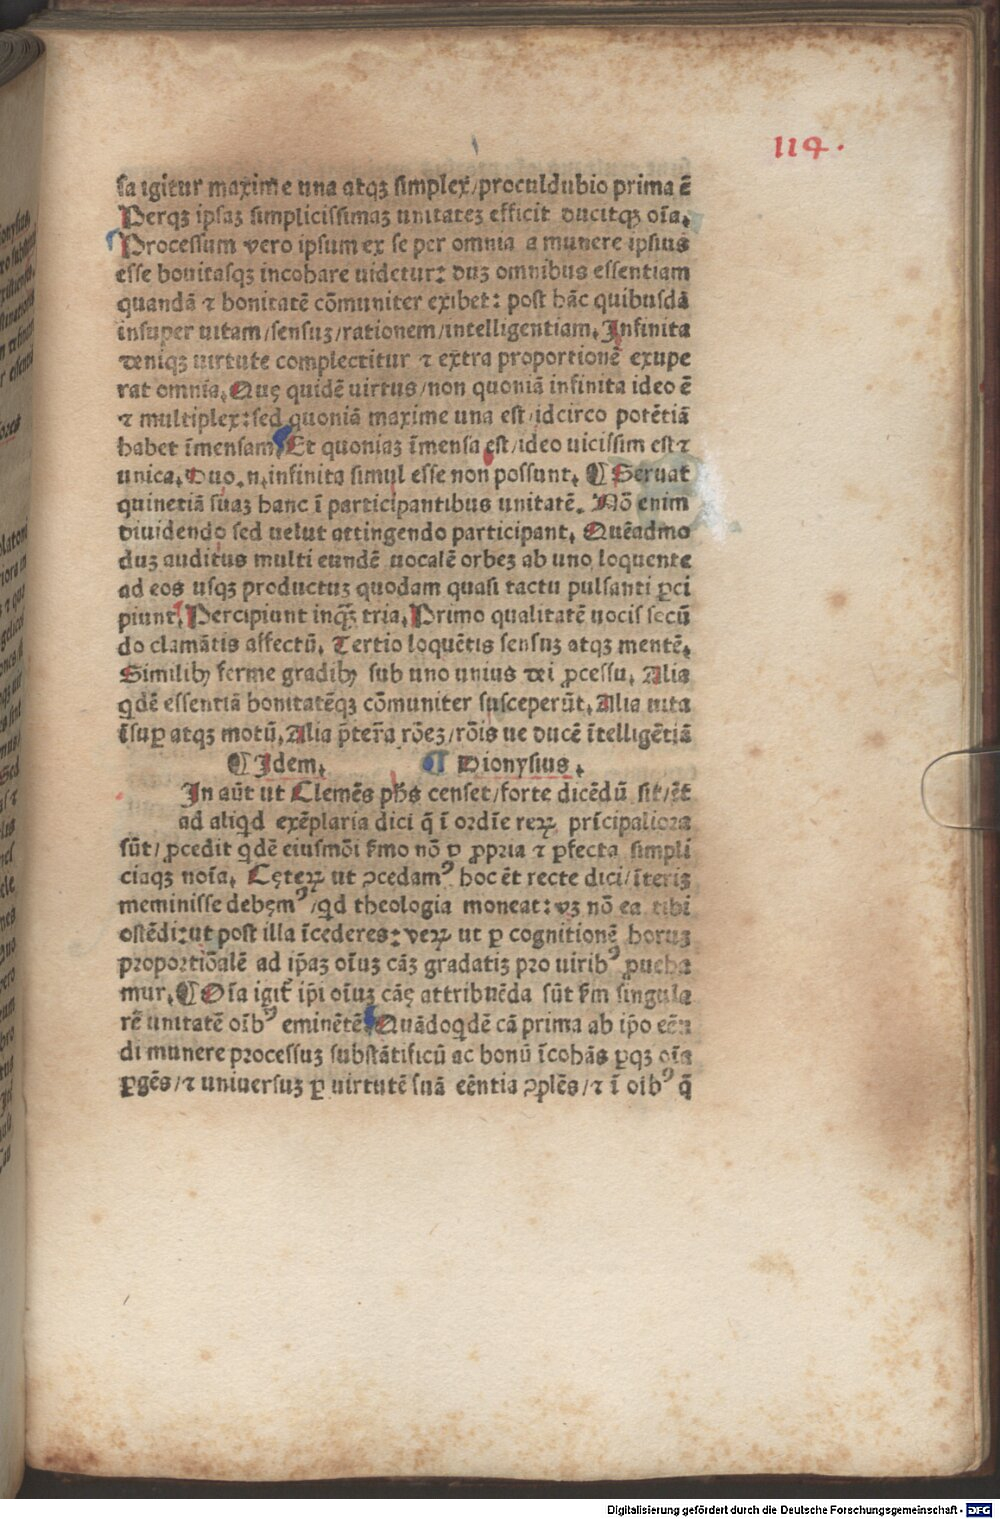 114.
sa igitur maxime una atqꝫ simplex/proculdubio prima ē
Perqꝫ ipsaꝫ simplicissimaꝫ unitateꝫ efficit ducitqꝫ oīa.
Processum vero ipsum ex se per omnia a munere ipsius
esse bonitasqꝫ incohare uidetur: duꝫ omnibus essentiam
quandā ⁊ bonitatē cōmuniter exibet: post hāc quibusdā
insuper uitam/sensuꝫ/rationem/intelligentiam. Infinita
deniqꝫ uirtute complectitur ⁊ extra proportionē exupe
rat omnia. Quę quidē uirtus/non quoniā infinita ideo ē
⁊ multiplex: sed quoniā maxime una est/idcirco potētiā
habet īmensam Et quoniaꝫ īmensa est/ideo uicissim est ⁊
unica. Duo .n. infinita simul esse non possunt. ¶ Seruat
quinetiā suaꝫ hanc ī participantibus unitatē. Nō enim
diuidendo sed uelut attingendo participant. Quēadmo
duꝫ auditus multi eundē uocalē orbeꝫ ab uno loquente
ad eos usqꝫ productuꝫ quodam quasi tactu pulsanti ꝑci
piunt. Percipiunt inqꝫ tria. Primo qualitatē uocis secū
do clamātis affectū. Tertio loquētis sensuꝫ atqꝫ mentē.
Similibꝫ ferme gradibꝫ sub uno unius dei ꝓcessu. Alia
qdē essentiā bonitatēqꝫ cōmuniter susceperūt. Alia uita
īsuꝑ atqꝫ motū. Alia p̄tera rōeꝫ/rōis ue ducē ītelligētiā
¶ Idem. ¶ Dionysius.
In aūt ut Clemēs phs censet/forte dicēdū sit/ēt
ad aliqd exēplaria dici q̄ ī ordīe reꝝ prīcipaliora
sūt/ꝓcedit qdē eiusmōi ẜmo nō ꝑ ꝓpria ⁊ ꝑfecta simpli
ciaqꝫ noīa. Cęteꝝ ut ꝯcedamꝰ hoc ēt recte dici/īteriꝫ
meminisse debęmꝰ/qd theologia moneat: vꝫ nō ea tibi
ostēdi: ut post illa īcederes: veꝝ ut ꝑ cognitionē horuꝫ
proportiōalē ad ip̄aꝫ oīuꝫ cāꝫ gradatiꝫ pro uiribꝰ ꝓueha
mur. ¶ Oīa igit̄ ip̄i oīuꝫ cāę attribuēda sūt ẜm singula
rē unitatē oībꝰ eminētē Quādoqdē cā prima ab ip̄o eēn
di munere processuꝫ substātificū ac bonū īcohās ꝑqꝫ oīa
ꝑgēs/⁊ uniuersuꝫ ꝑ uirtutē suā eēntia ꝯplēs/⁊ ī oibꝰ q̄
Digitalisierung gefördert durch die Deutsche Forschungsgemeinschaft - DFG